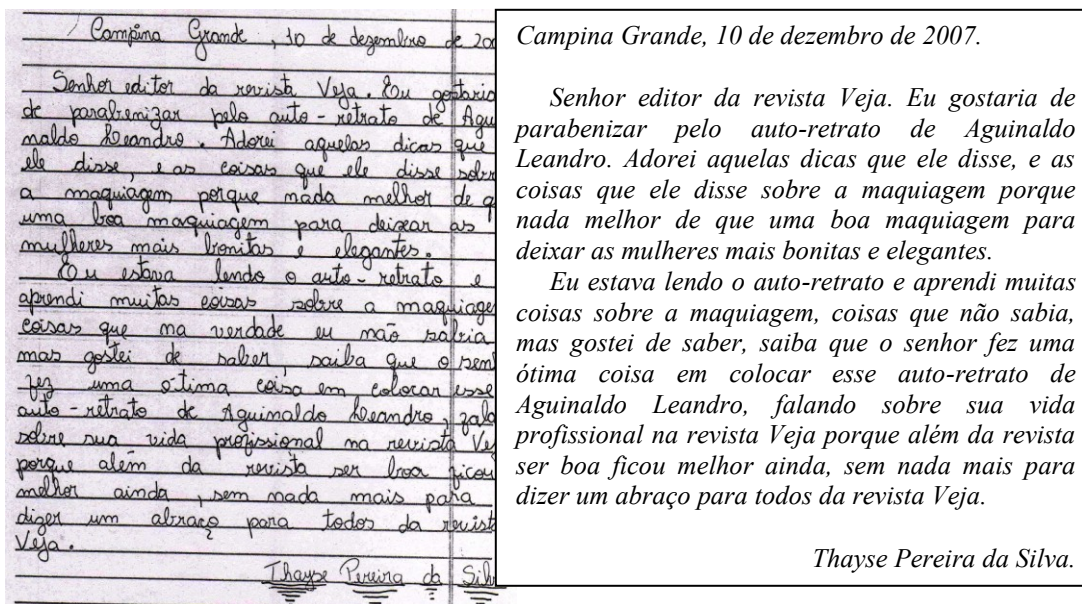 Campina Grande, 10 de dezembro de 200
Senhor editor da revista Veja. Eu gostaria
de parabenizar pelo auto-retrato de Agui
naldo Leandro. Adorei aquelas dicas que
ele disse, e as coisas que ele disse sobre
a maquiagem porque nada melhor de q
uma boa maquiagem para deixar as
mulheres mais bonitas e elegantes.
Eu estava lendo o auto-retrato e
aprendi muitas coisas sobre a maquiage
coisas que na verdade eu não sabia
mas gostei de saber, saiba que o senh
fez uma ótima coisa em colocar esse
auto-retrato de Aguinaldo Leandro, fala
sobre sua vida profissional na revista Vej
porque além da revista ser boa ficou
melhor ainda, sem nada mais para
dizer um abraço para todos da revista
Veja.
Thayse Pereira da Silv
Campina Grande, 10 de dezembro de 2007.
Senhor editor da revista Veja. Eu gostaria de
parabenizar pelo auto-retrato de Aguinaldo
Leandro. Adorei aquelas dicas que ele disse, e as
coisas que ele disse sobre a maquiagem porque
nada melhor de que uma boa maquiagem para
deixar as mulheres mais bonitas e elegantes.
Eu estava lendo o auto-retrato e aprendi muitas
coisas sobre a maquiagem, coisas que não sabia,
mas gostei de saber, saiba que o senhor fez uma
ótima coisa em colocar esse auto-retrato de
Aguinaldo Leandro, falando sobre sua vida
profissional na revista Veja porque além da revista
ser boa ficou melhor ainda, sem nada mais para
dizer um abraço para todos da revista Veja.
Thayse Pereira da Silva.